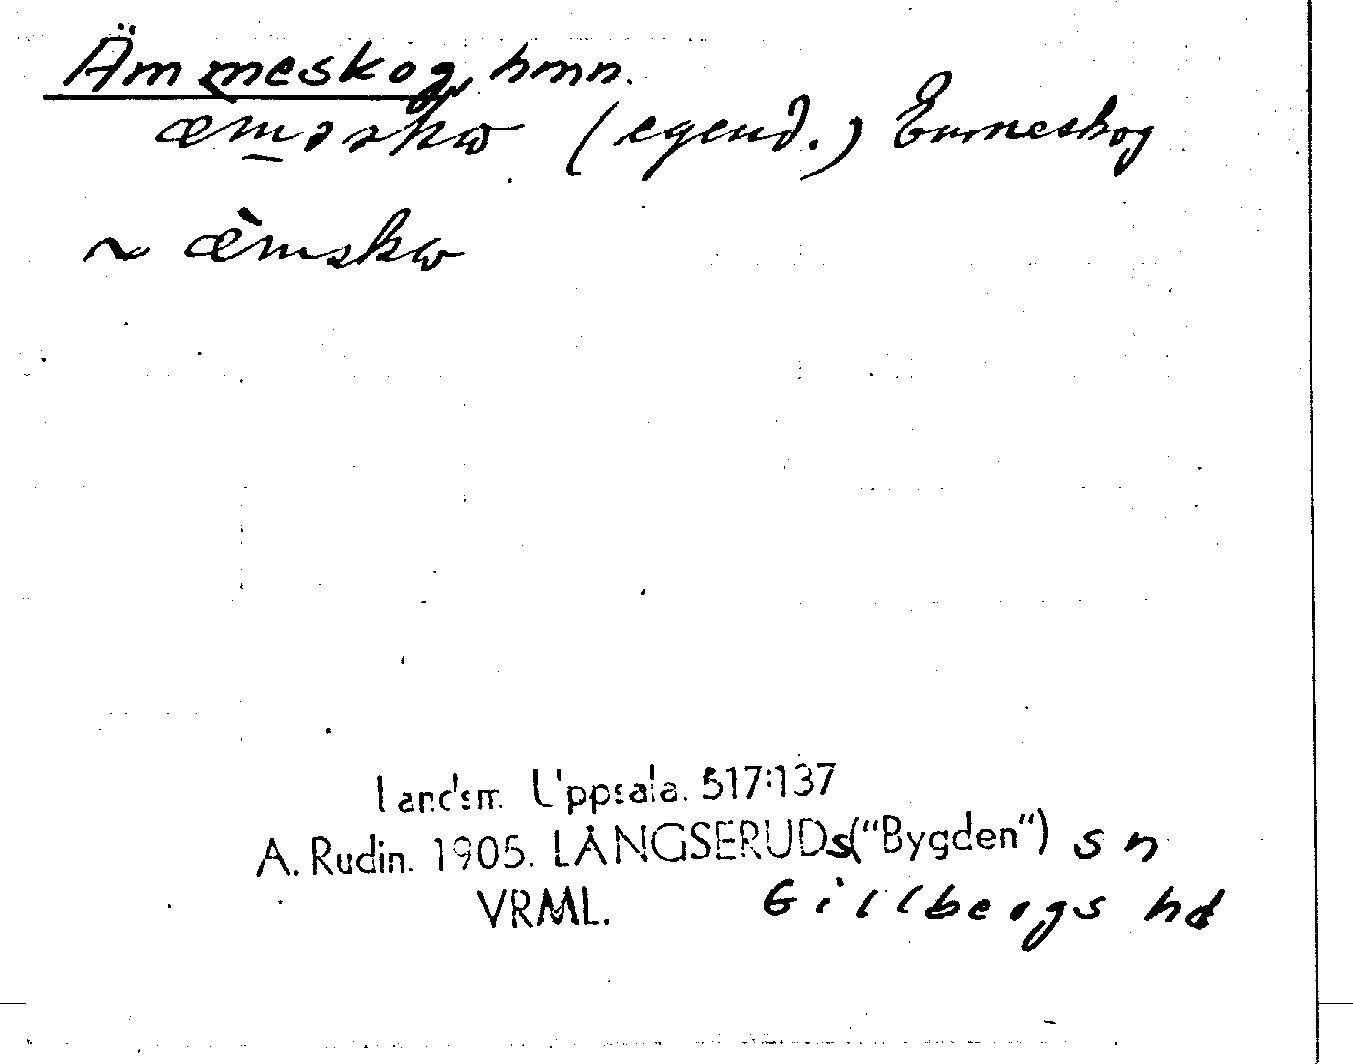 Ämmeskog, hmn.
æm̱əskω (egend.) Emmeskog
~ æ̀mskω
Landsm. Uppsala. 517:137
A. Rudin. 1905. LÅNGSERUDs ("Bygden") sn
VRML. Gillbergs hd